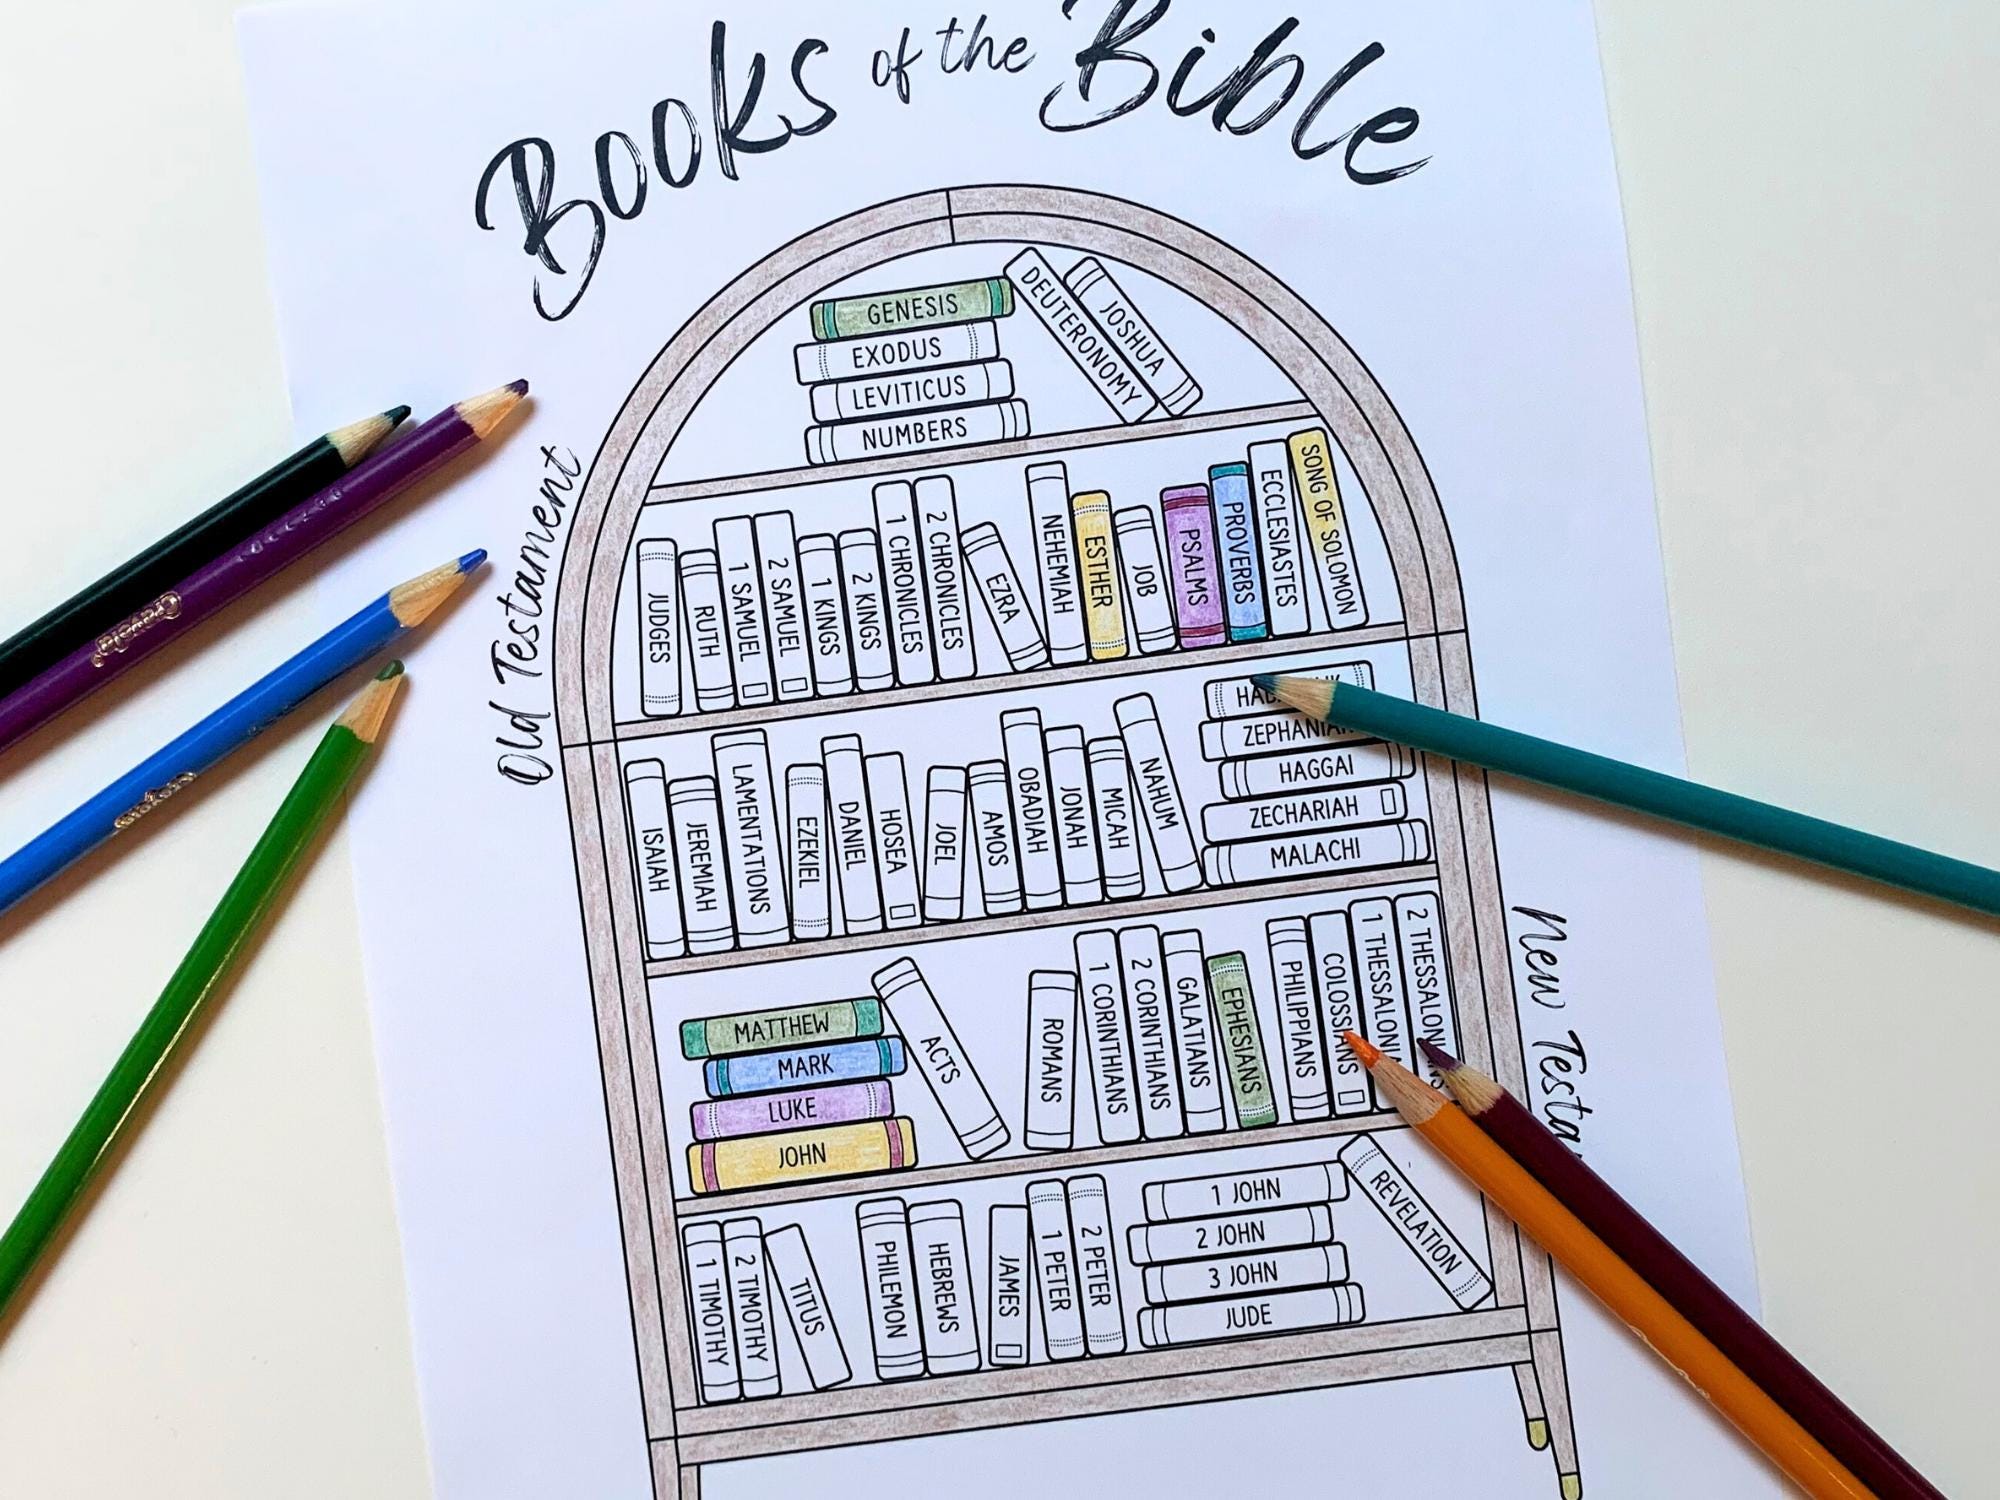 Books of the Bible
Old Testament
GENESIS
EXODUS
LEVITICUS
NUMBERS
DEUTERONOMY
JOSHUA
JUDGES
RUTH
1 SAMUEL
2 SAMUEL
1 KINGS
2 KINGS
1 CHRONICLES
2 CHRONICLES
EZRA
NEHEMIAH
ESTHER
JOB
PSALMS
PROVERBS
ECCLESIASTES
SONG OF SOLOMON
ISAIAH
JEREMIAH
LAMENTATIONS
EZEKIEL
DANIEL
HOSEA
JOEL
AMOS
OBADIAH
JONAH
MICAH
NAHUM
ZEPHANIAH
HAGGAI
ZECHARIAH
MALACHI
New
MATTHEW
MARK
LUKE
JOHN
ACTS
ROMANS
1 CORINTHIANS
2 CORINTHIANS
GALATIANS
EPHESIANS
PHILIPPIANS
COLOSSIANS
1
2
1 TIMOTHY
2 TIMOTHY
TITUS
PHILEMON
HEBREWS
JAMES
1 PETER
2 PETER
1 JOHN
2 JOHN
3 JOHN
JUDE
REVELATION
Crayola